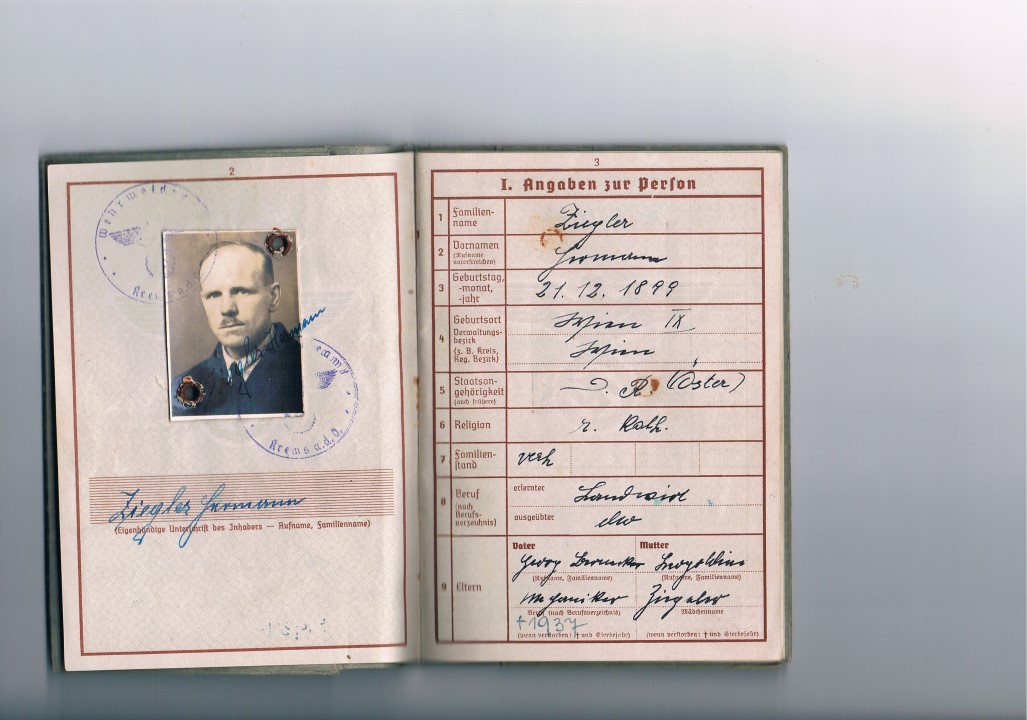 2
Wehrmelde
Krems a.d.
Krems a.d.D.
Ziegler Hermann
Ziegler Hermann
(Eigenhändige Unterschrift des Inhabers — Rufname, Familienname)
3
I. Angaben zur Person
1 Familien-
name
Ziegler
2 Vornamen
(Rufname
unterstreichen)
Hermann
3 Geburtstag,
-monat,
-jahr
21. 12. 1899
4 Geburtsort
Verwaltungs-
bezirk
(z. B. Kreis,
Reg. Bezirk)
Wien IX
Wien
5 Staatsan-
gehörigkeit
(auch frühere)
D. R. (Öster)
6 Religion
r. Kath.
7 Familien-
stand
verh
8 Beruf
(nach
Berufs-
verzeichnis)
erlernter
Landwirt
ausgeübter
9 Eltern
Vater Mutter
Georg Leopoldine
(Rufname, Familienname) (Rufname, Familienname)
Mechaniker
Beruf (nach Berufsverzeichnis) Mädchenname
† 1937
(wenn verstorben: † und Sterbejahr) (wenn verstorben: † und Sterbejahr)